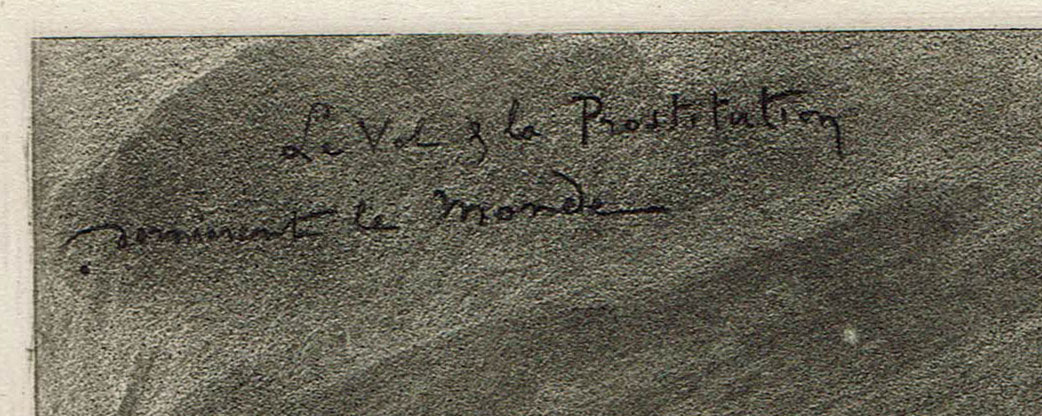 Le Vol & la Prostitution
dominent le Monde